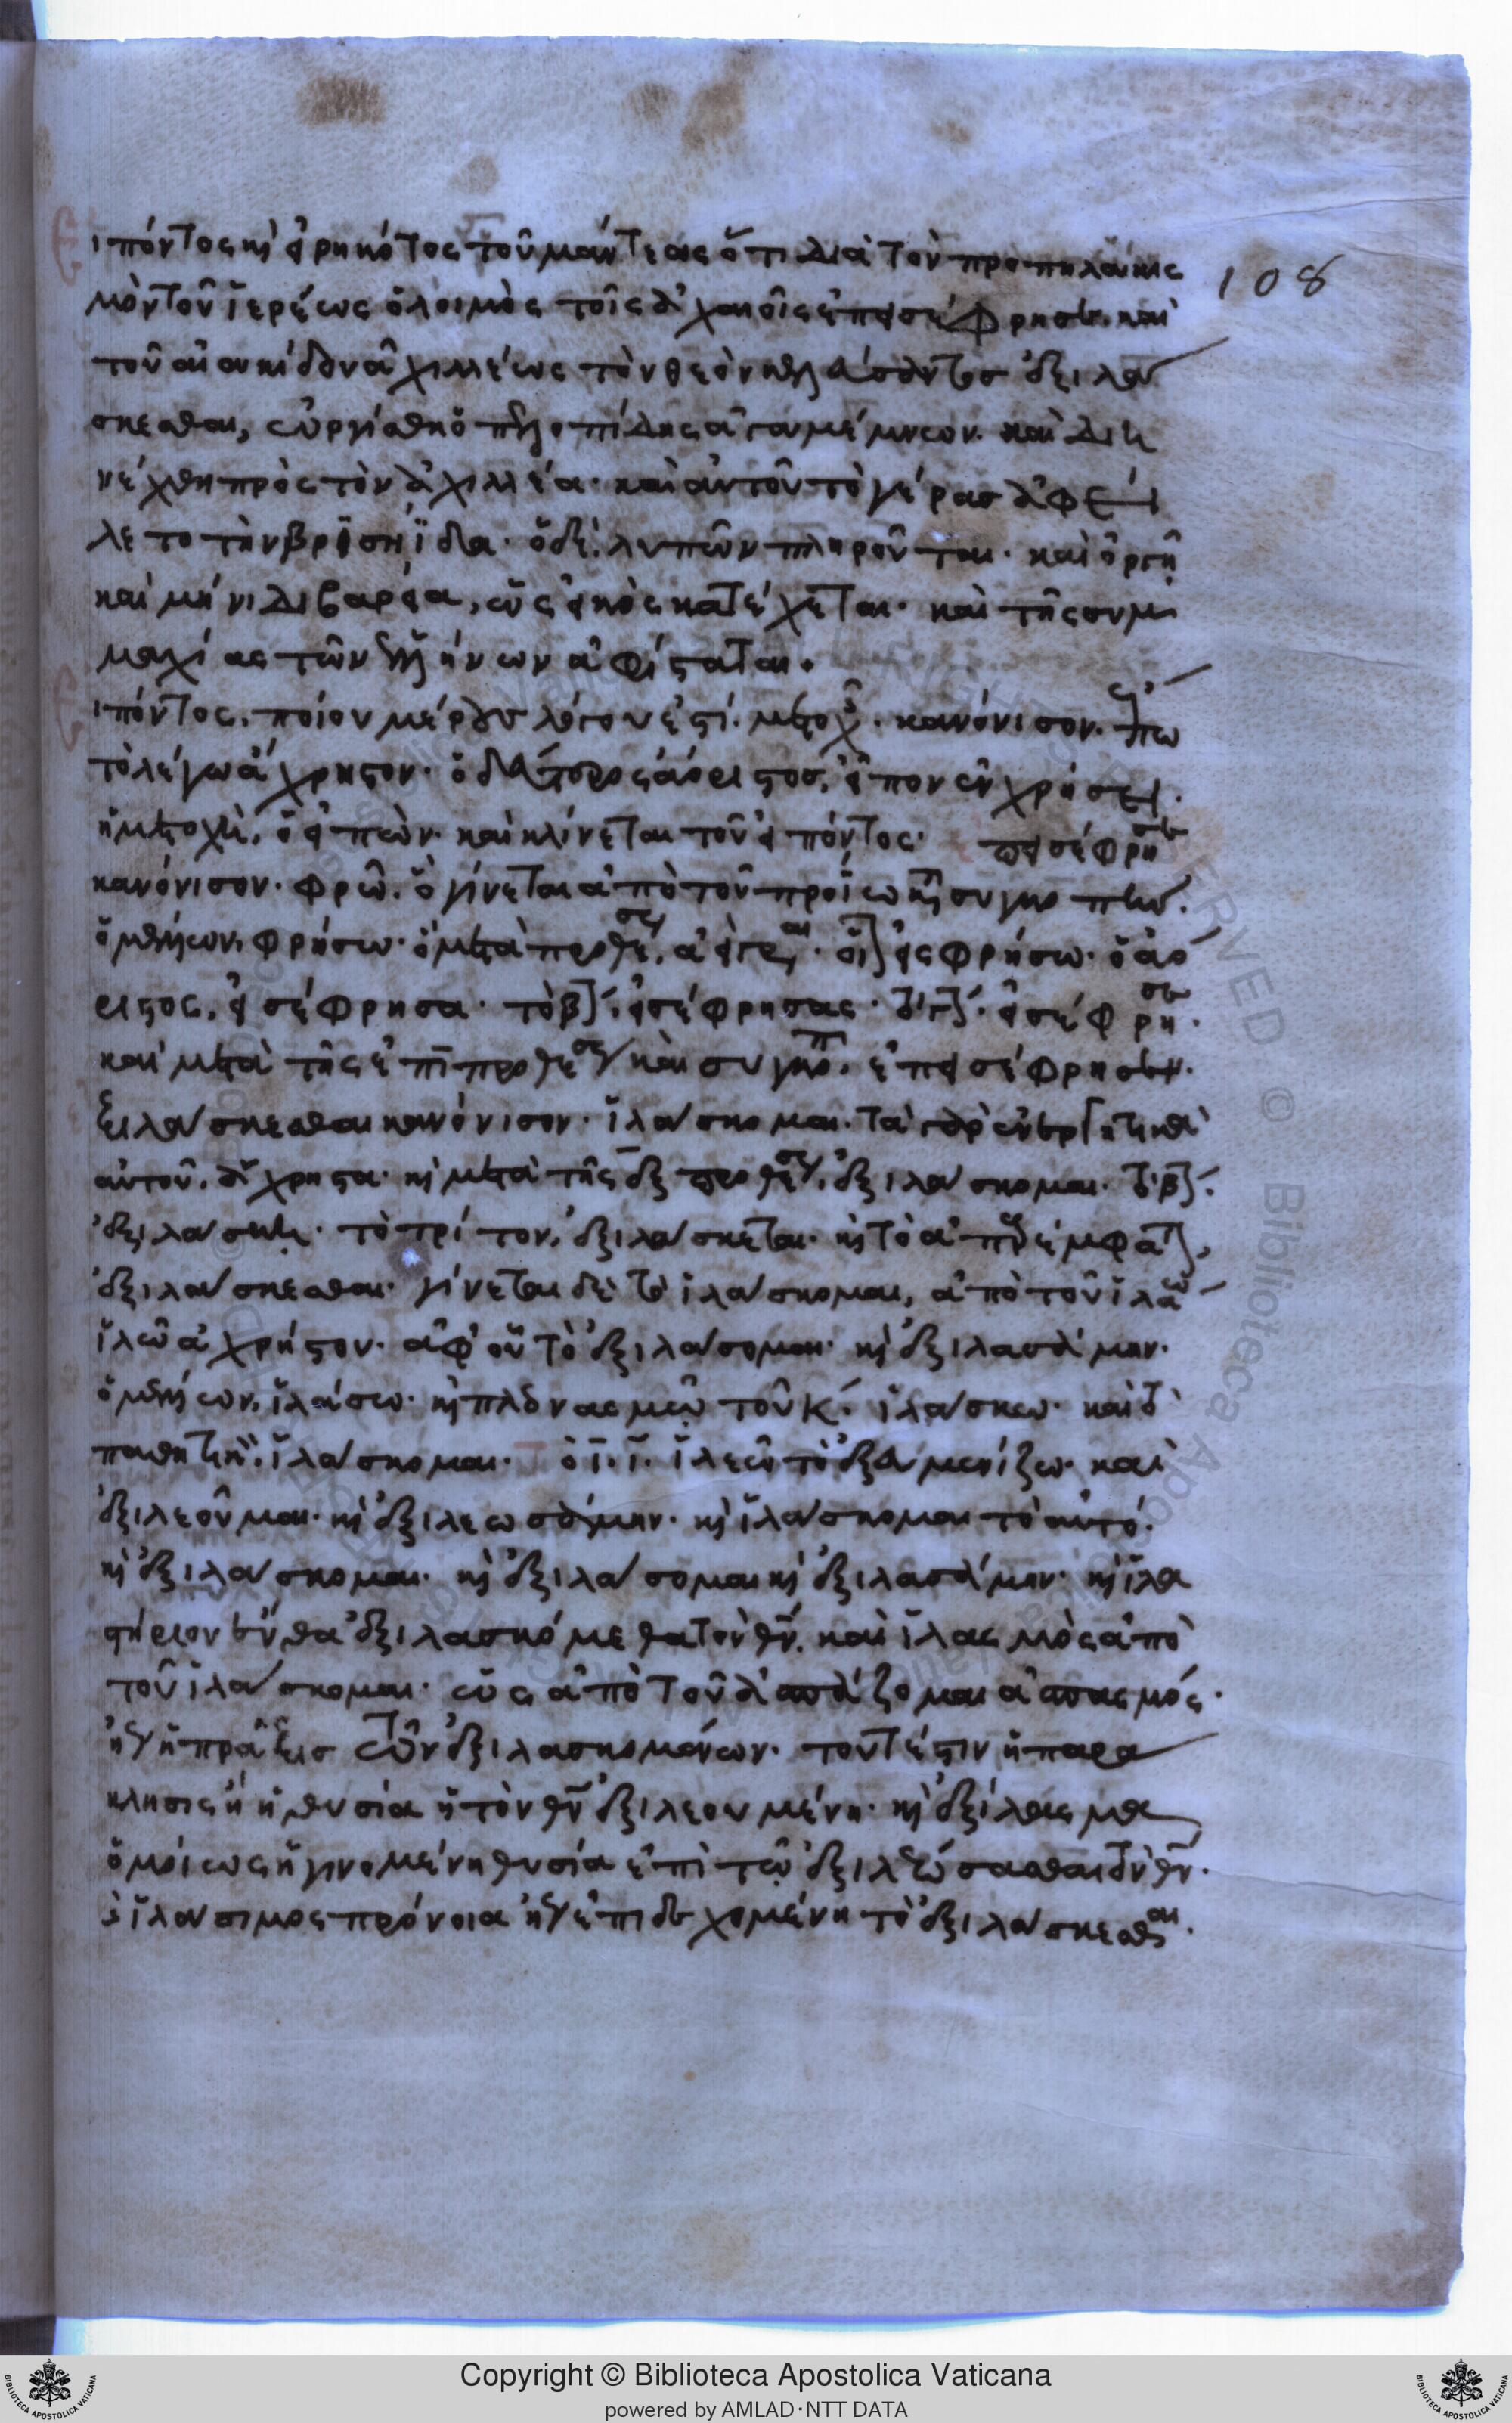 Ειπόντος κỳ εἰρηκότος τοῦ μάντεως ὅτι διὰ τὸν προπηλακισ
μὸν τοῦ ἱερέως ὁ λοιμὸς τοῖς ἀχαιοῖς ἐπεισέφρησε. καὶ
τοῦ αἰακίδου ἀχιλλέως τὸν θεὸν κελεύσαντος ἐξιλά
σκεσθαι, ὠργίσθη ὁ πελοπίδης ἀγαμέμνων. καὶ διη
νέχθη πρὸς τὸν ἀχιλλέα. καὶ αὐτοῦ τὸ γέρας ἀφεί
λετο τὴν βρισηΐδα. ὁ δὲ λυπῶν πληροῦται. καὶ ὀργῆ
καὶ μήνιδι βαρεία, ὡς εἰκὸς κατέχεται. καὶ τῆς συμ
μαχίας τῶν ἑλλήνων ἀφίσταται.
Ειπόντος. ποίου μέρους λόγου ἐστί. μετοχῆς. κανόνισον. ἔπω
τὸ λέγω ἄχρηστον. ὁ δεύτερος ἀόριστος, εἶπον ἐν χρήσει.
ἡ μετοχὴ, ὁ εἰπών. καὶ κλίνεται τοῦ εἰπόντος. ἐπεισέφρησε
κανόνισον. φρῶ. ὃ γίνεται ἀπὸ τοῦ προΐω κατὰ συγκοπήν.
ὁ μέλλων, φρήσω. ὁ μετὰ προθέσεως, εἰσφρήσω. ὁ ἀό
ριστος, εἰσέφρησα. τὸ β΄. εἰσέφρησας. τὸ γ΄. εἰσέφρησε.
καὶ μετὰ τῆς ἐπὶ προθέσεως καὶ συγκοπῆ. ἐπεισέφρησεν.
ἐξιλάσκεσθαι κανόνισον. ἱλάσκομαι. τὰ γὰρ ἐνεργητικὰ
αὐτοῦ, ἄχρηστα. κỳ μετὰ τῆς ἐξ προθέσεως, ἐξιλάσκομαι. τὸ β΄.
ἐξιλάσκη. τὸ τρίτον, ἐξιλάσκεται. κỳ τὸ ἀπαρέμφατον,
ἐξιλάσκεσθαι. γίνεται δὲ τὸ ἱλάσκομαι, ἀπὸ τοῦ ἱλάω
ἱλῶ ἀχρήστου. ἀφ' οὗ τὸ ἐξιλάσομαι. κỳ ἐξιλασάμην.
ὁ μέλλων, ἱλάσω. κỳ πλεονασμῶ τοῦ κ. ἱλάσκω. καὶ τὸ
παθητικὸν. ἱλάσκομαι. ἱλεῶ τὸ ἐξευμενίζω. καὶ
ἐξιλεοῦμαι. κỳ ἐξιλεωσάμην. κỳ ἱλάσκομαι τὸ αὐτό.
κỳ ἐξιλάσκομαι. κỳ ἐξιλάσομαι κỳ ἐξιλασάμην. κỳ ἱλα
στήριον ἔνθα ἐξιλασκόμεθα τὸν θν. καὶ ἱλασμὸς ἀπὸ
τοῦ ἱλάσκομαι. ὡς ἀπὸ τοῦ ἀσπάζομαι ἀσπασμός.
ἤγουν ἡ πρᾶξις τῶν ἐξιλασκομένων. τουτέστιν ἡ παρά
κλησις ἢ ἡ θυσία ἡ τὸν θν ἐξιλεουμένη. κỳ ἐξίλασμα
ὁμοίως ἡ γινομένη θυσία ἐπὶ τῶ ἐξιλεώσασθαι τὸν θν.
ἱλάσιμος πρόνοια ἤγουν ἐπιδεχομένη τὸ ἐξιλάσκεσθαι.
108
Copyright © Biblioteca Apostolica Vaticana
powered by AMLAD·NTT DATA